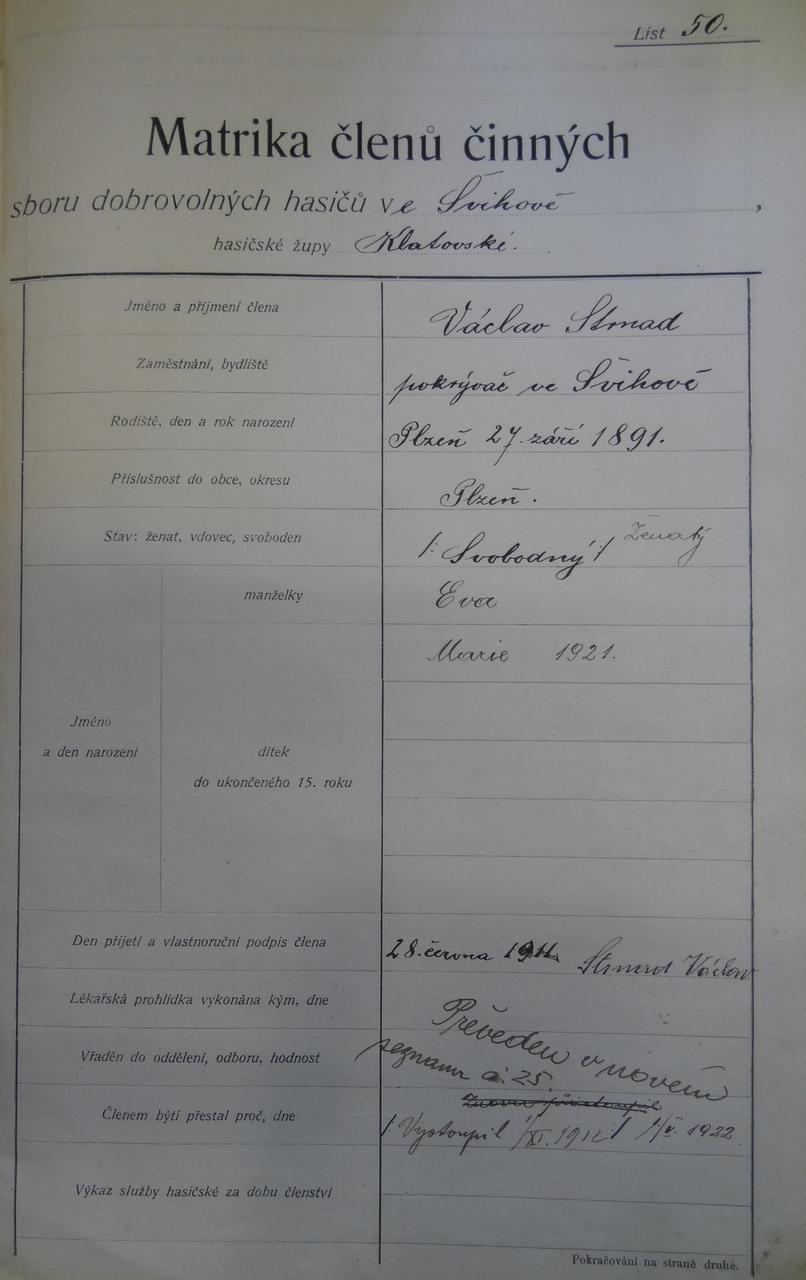 List 50.
Matrika členů činných
sboru dobrovolných hasičů ve Švihově,
hasičské župy Klatovské.
Jméno a příjmení člena Václav Strnad
Zaměstnání, bydliště pokrývač ve Švihově
Rodiště, den a rok narození Plzeň 27 září 1891.
Příslušnost do obce, okresu Plzeň.
Stav: ženat, vdovec, svoboden /: Svobodný :/ Ženatý
manželky Eva
Marie 1921.
Jméno
a den narození
dítek
do ukončeného 15. roku
Den přijetí a vlastnoruční podpis člena 28. června 1911. Strnad Václav
Lékařská prohlídka vykonána kým, dne
Převeden v novém
Vřaděn do oddělení, odboru, hodnost seznamu č. 25.
Znovu přistoupil
Členem býti přestal proč, dne /: Vystoupil 1/XI. 1912 :/ 1/V. 1922
Výkaz služby hasičské za dobu členství
Pokračování na straně druhé.